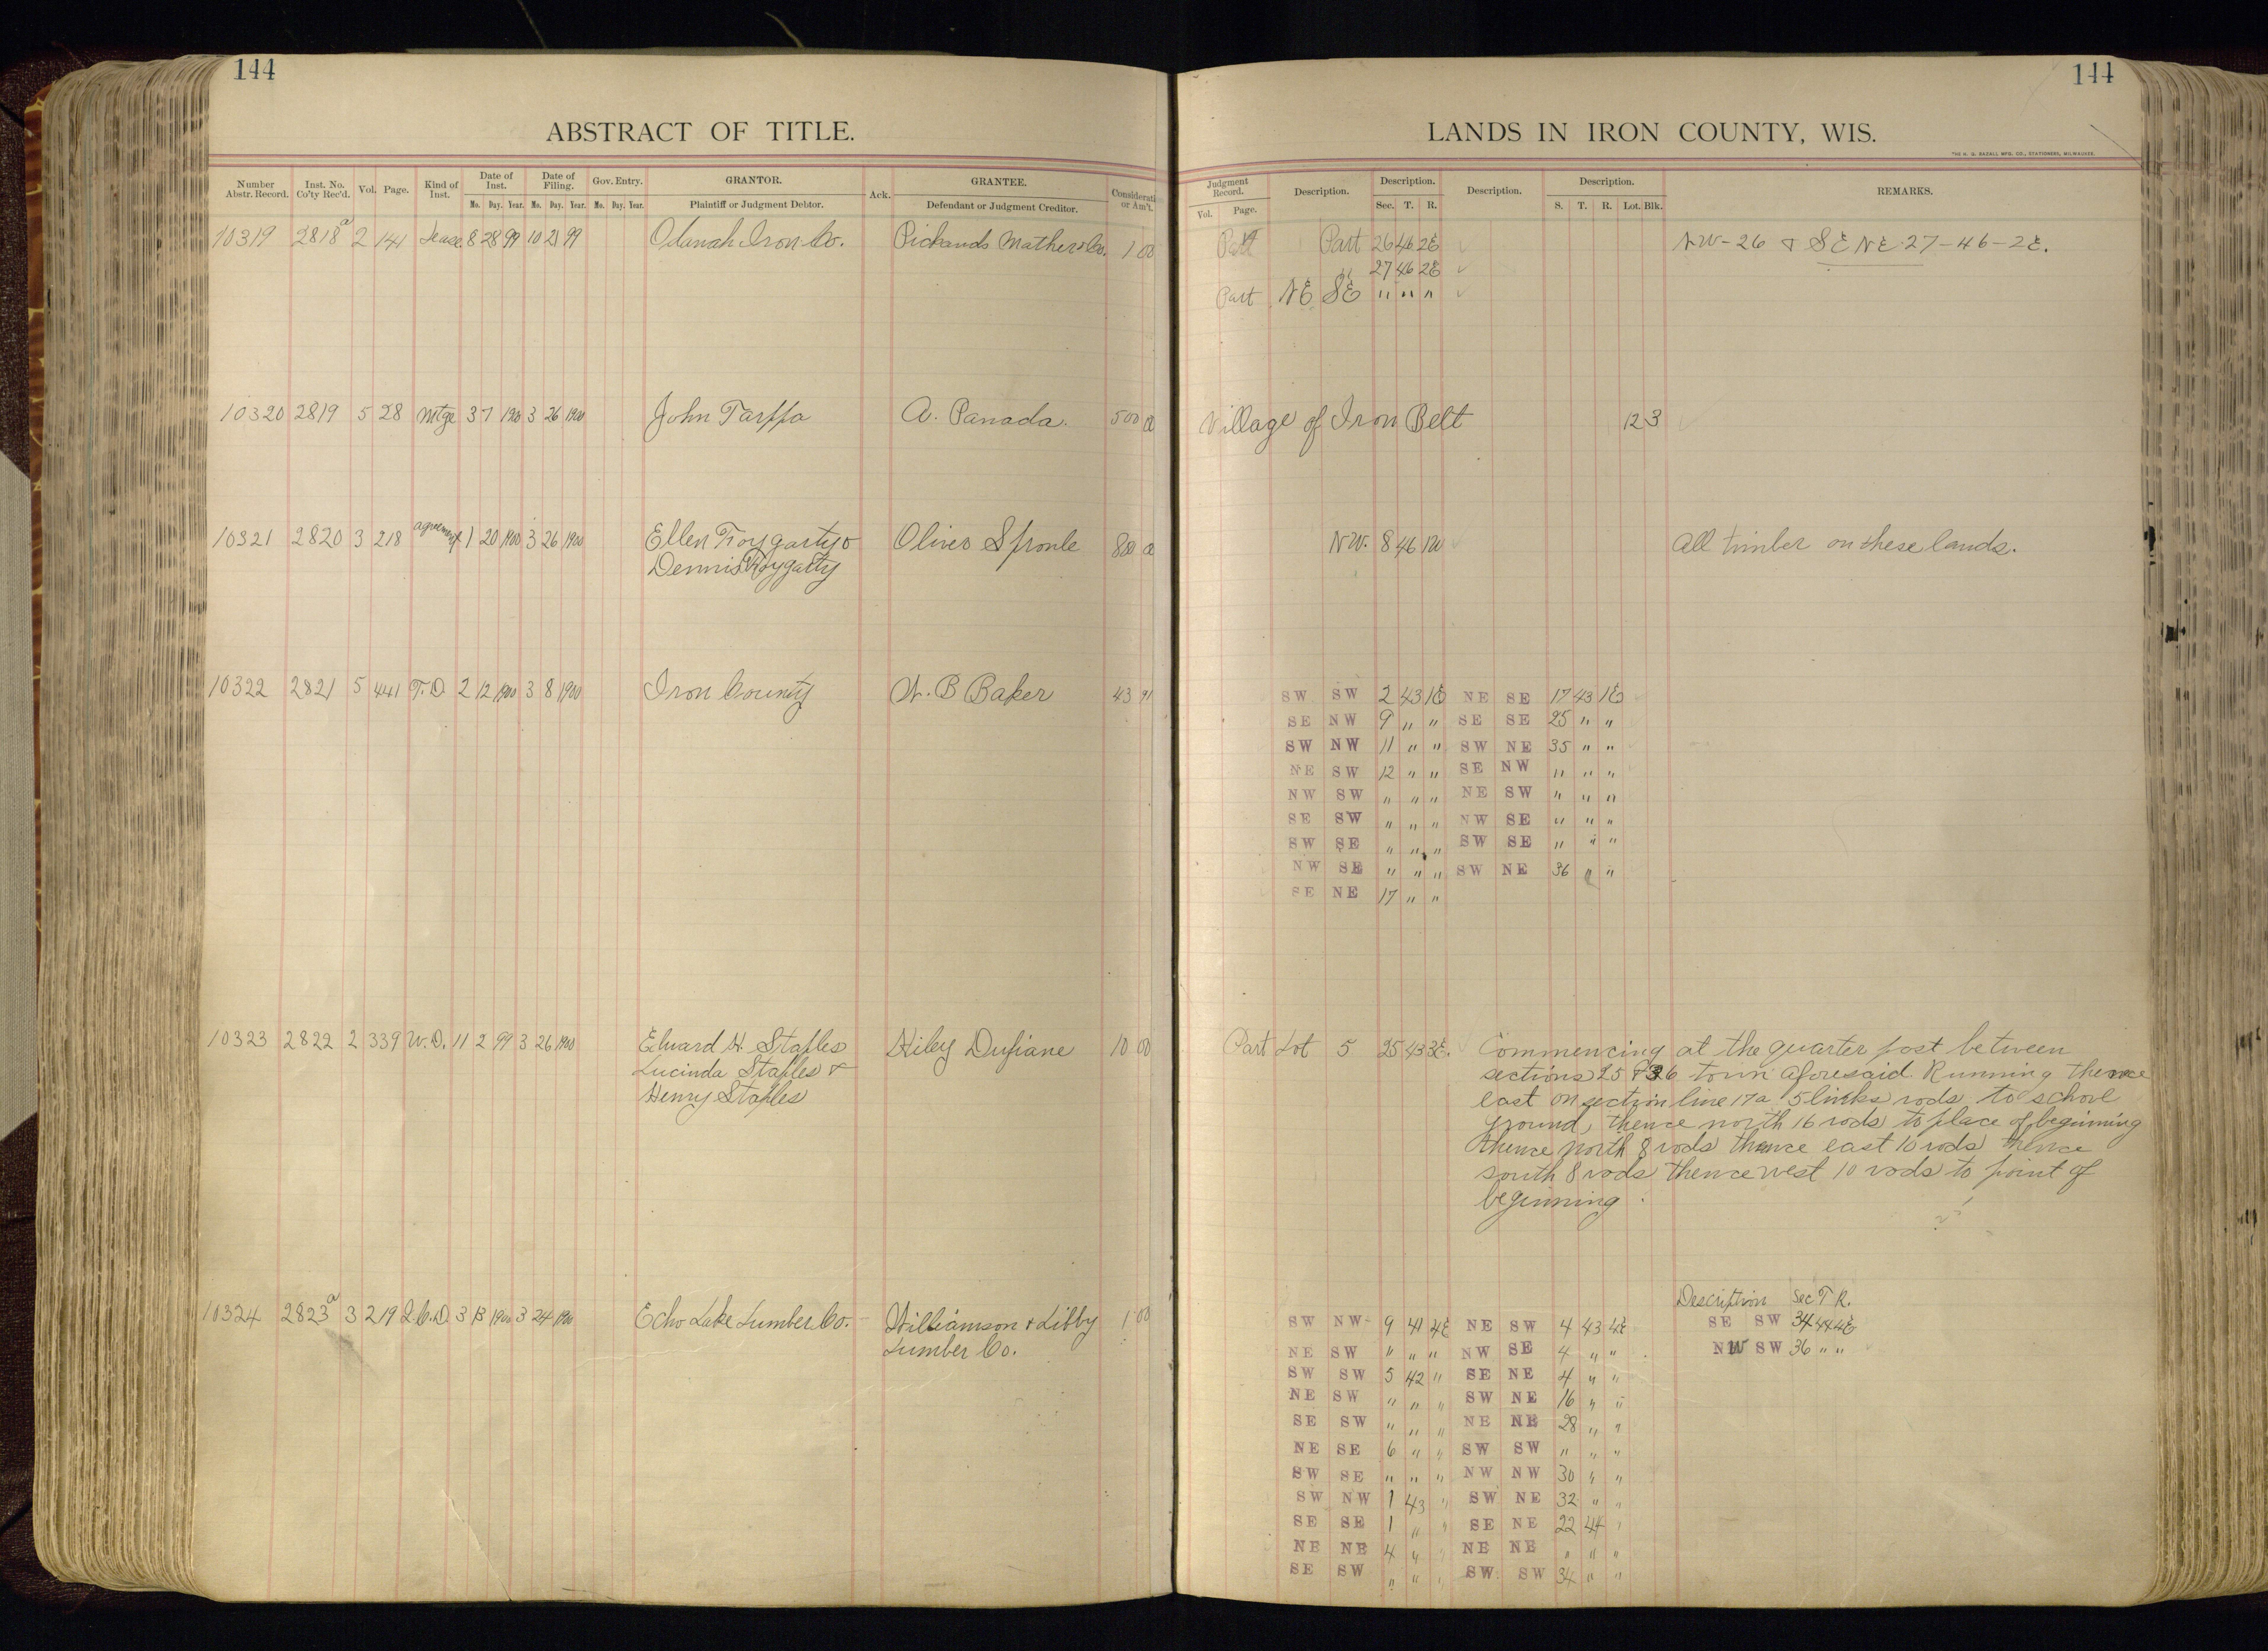 144
ABSTRACT OF TITLE.
Number Abstr. Record. Inst. No. Co'ty Rec'd. Vol. Page. Kind of Inst. Date of Inst. Date of Filing. Gov. Entry. GRANTOR. Ack. GRANTEE. Considerati or Am't.
Mo. Day. Year. Mo. Day. Year. Mo. Day. Year. Plaintiff or Judgment Debtor. Defendant or Judgment Creditor.
10319 2818a 2 141 Lease 8 28 99 10 21 99 Odanah Iron Co. Pickands Mather & Co. 1 00
10320 2819 5 28 Mtge 3 7 1900 3 26 1900 John Tarffa A. Panada. 500 00
10321 2820 3 218 agreement 1 20 1900 3 26 1900 Ellen Froygarty & Oliver Sproule 800 00
Dennis Froygarty
10322 2821 5 441 T.D. 2 12 1900 3 8 1900 Iron County W. B Baker 43 91
10323 2822 2 339 W.D. 11 2 99 3 26 1900 Edward H. Staples Wiley Dufiane 10 00
Lucinda Staples &
Henry Staples
10324 2823a 3 219 Q.C.D. 3 13 1900 3 24 1900 Echo Lake Lumber Co. Williamson & Libby 1 00
Lumber Co.
144
LANDS IN IRON COUNTY, WIS.
THE H. G. RAZALL MFG. CO., STATIONERS, MILWAUKEE.
Judgment Record. Description. Description. Description. Description. REMARKS.
Vol. Page. Sec. T. R. S. T. R. Lot. Blk.
Part 26 46 2E NW-26 & SE NE 27-46-2E.
" 27 46 2E
Part NE SE " " "
Village of Iron Belt 12 3
NW. 8 46 1W All timber on these lands.
SW SW 2 43 1E NE SE 17 43 1E
SE NW 9 " " SE SE 25 " "
SW NW 11 " " SW NE 35 " "
NE SW 12 " " SE NW " " "
NW SW " " " NE SW " " "
SE SW " " " NW SE " " "
SW SE " " " SW SE " " "
NW SE " " " SW NE 36 " "
SE NE 17 " "
Part Lot 5 25 43 3E. Commencing at the quarter post between
sections 25 & 36 town aforesaid. Running thence
east on section line 17a 5 links rods to school
ground, thence north 16 rods to place of beginning
thence north 8 rods thence east 10 rods thence
south 8 rods thence west 10 rods to point of
beginning
Description Sec T R.
SW NW 9 41 4E NE SW 4 43 4E SE SW 34 44 4E
NE SW " " " NW SE 4 " " NW SW 36 " "
SW SW 5 42 " SE NE 4 " "
NE SW " " " SW NE 16 " "
SE SW " " " NE NE 28 " "
NE SE 6 " " SW SW " " "
SW SE " " " NW NW 30 " "
SW NW 1 43 " SW NE 32 " "
SE SE 1 " " SE NE 22 44 "
NE NE 4 " " NE NE " " "
SE SW " " " SW SW 34 " "